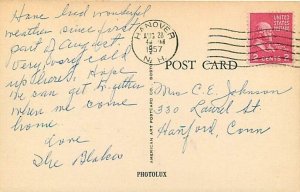 Have had wonderful
weather since first
part of August.
Very cold
up there. Hope
we can get together
when we come
home.
Love
The Blakes
HANOVER
AUG 28
1957
N.H.
POST CARD
UNITED STATES POSTAGE
2 CENTS 2
Mrs C. E. Johnson
330 Laurel St
Hartford, Conn
AMERICAN ART POSTCARD CO., BOSTON
PHOTOLUX